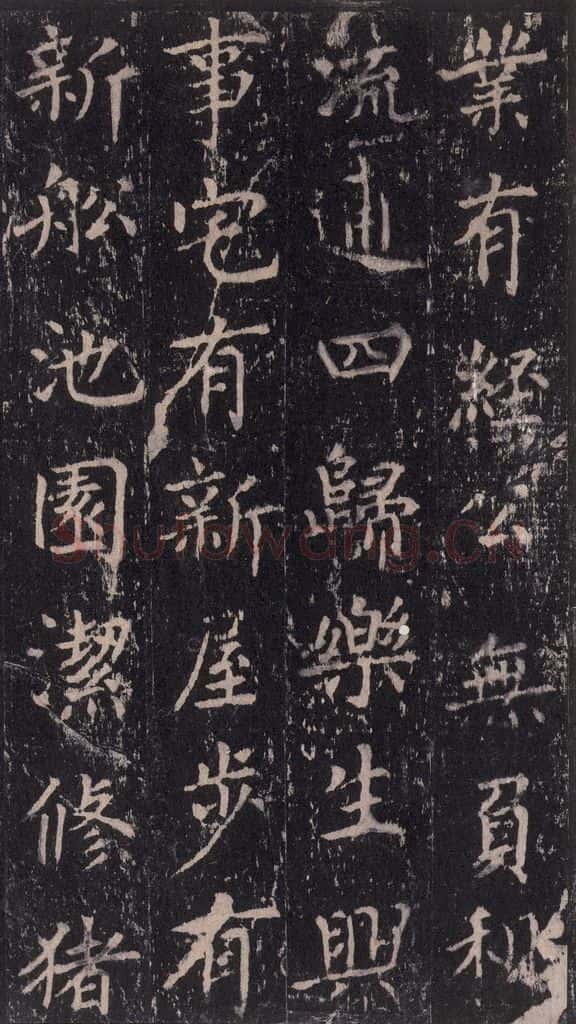 業有經公無負利
流通四歸樂生興
事宅有新屋步有
新船池園潔修猪
Shufawang.CN